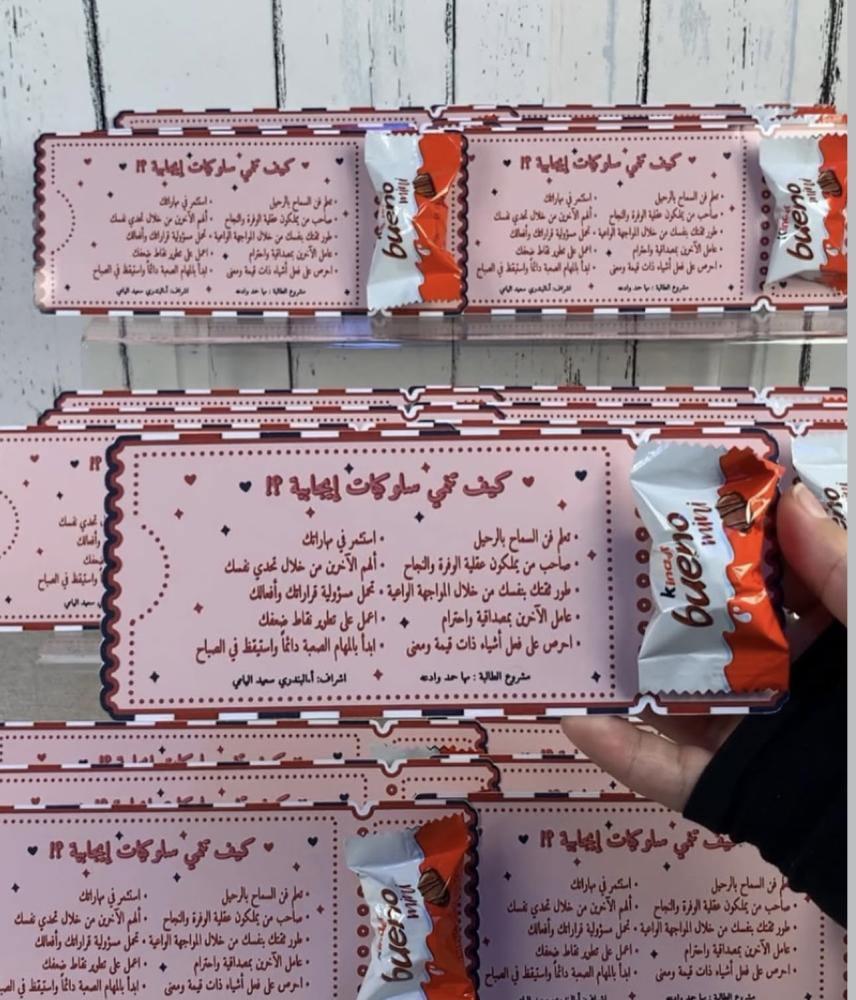 كيف تنمي سلوكيات إيجابية ؟!
• تعلم فن السماح بالرحيل
• صاحب من يملكون عقلية الوفرة والنجاح
• طور ثقتك بنفسك من خلال المواجهة الواعية
• عامل الآخرين بمصداقية واحترام
• احرص على فعل أشياء ذات قيمة ومعنى
• استثمر في مهاراتك
• ألهم الآخرين من خلال تحدي نفسك
• تحمل مسؤولية قراراتك وأفعالك
• اعمل على تطوير نقاط ضعفك
• ابدأ بالمهام الصعبة دائماً واستيقظ في الصباح
مشروع الطالبة : مها حمد وادعه
اشراف: أ.البندري سعيد اليامي
kinder
bueno
mini